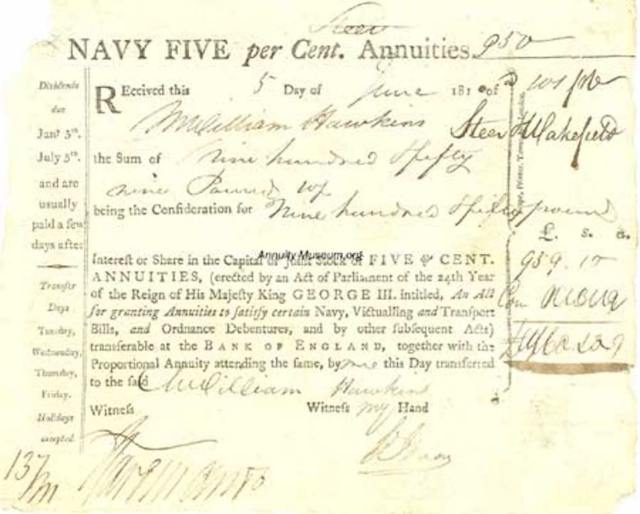 Steer
NAVY FIVE per Cent. Annuities. 950
Dividends
due
Jan. 5th.
July 5th.
and are
usually
paid a few
days after
Transfer
Days
Tuesday,
Wednesday,
Thursday,
Friday.
Holidays
excepted
REceived this 5 Day of June 1810 of
William Hawkins Steer Wakefield
the Sum of Nine hundred & fifty
nine Pounds
being the Consideration for Nine hundred & fifty pounds
£. s. d.
959. 10
Interest or Share in the Capital or Joint Stock of FIVE ⅌ CENT.
ANNUITIES, (erected by an Act of Parliament of the 24th Year
of the Reign of His Majesty King GEORGE III. intitled, An Act
for granting Annuities to satisfy certain Navy, Victualling and Transport
Bills, and Ordnance Debentures, and by other subsequent Acts)
transferable at the BANK OF ENGLAND, together with the
Proportional Annuity attending the same, by me this Day transferred
to the said William Hawkins
Witness Witness my Hand
137
Annuity Museum.org